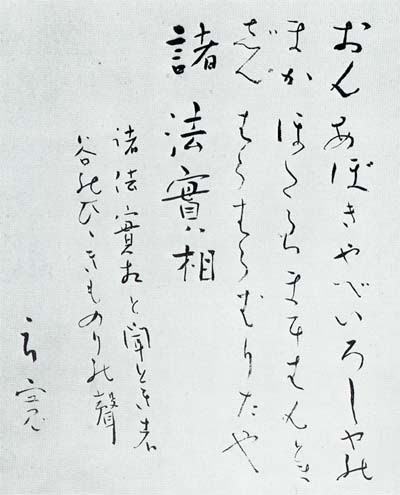 おんあぼきやべいろしやの
まかぼたらまにはんどま
じんはらはらばりたや
諸法實相
諸法實相と聞とき者
谷のひゞきものりの聲